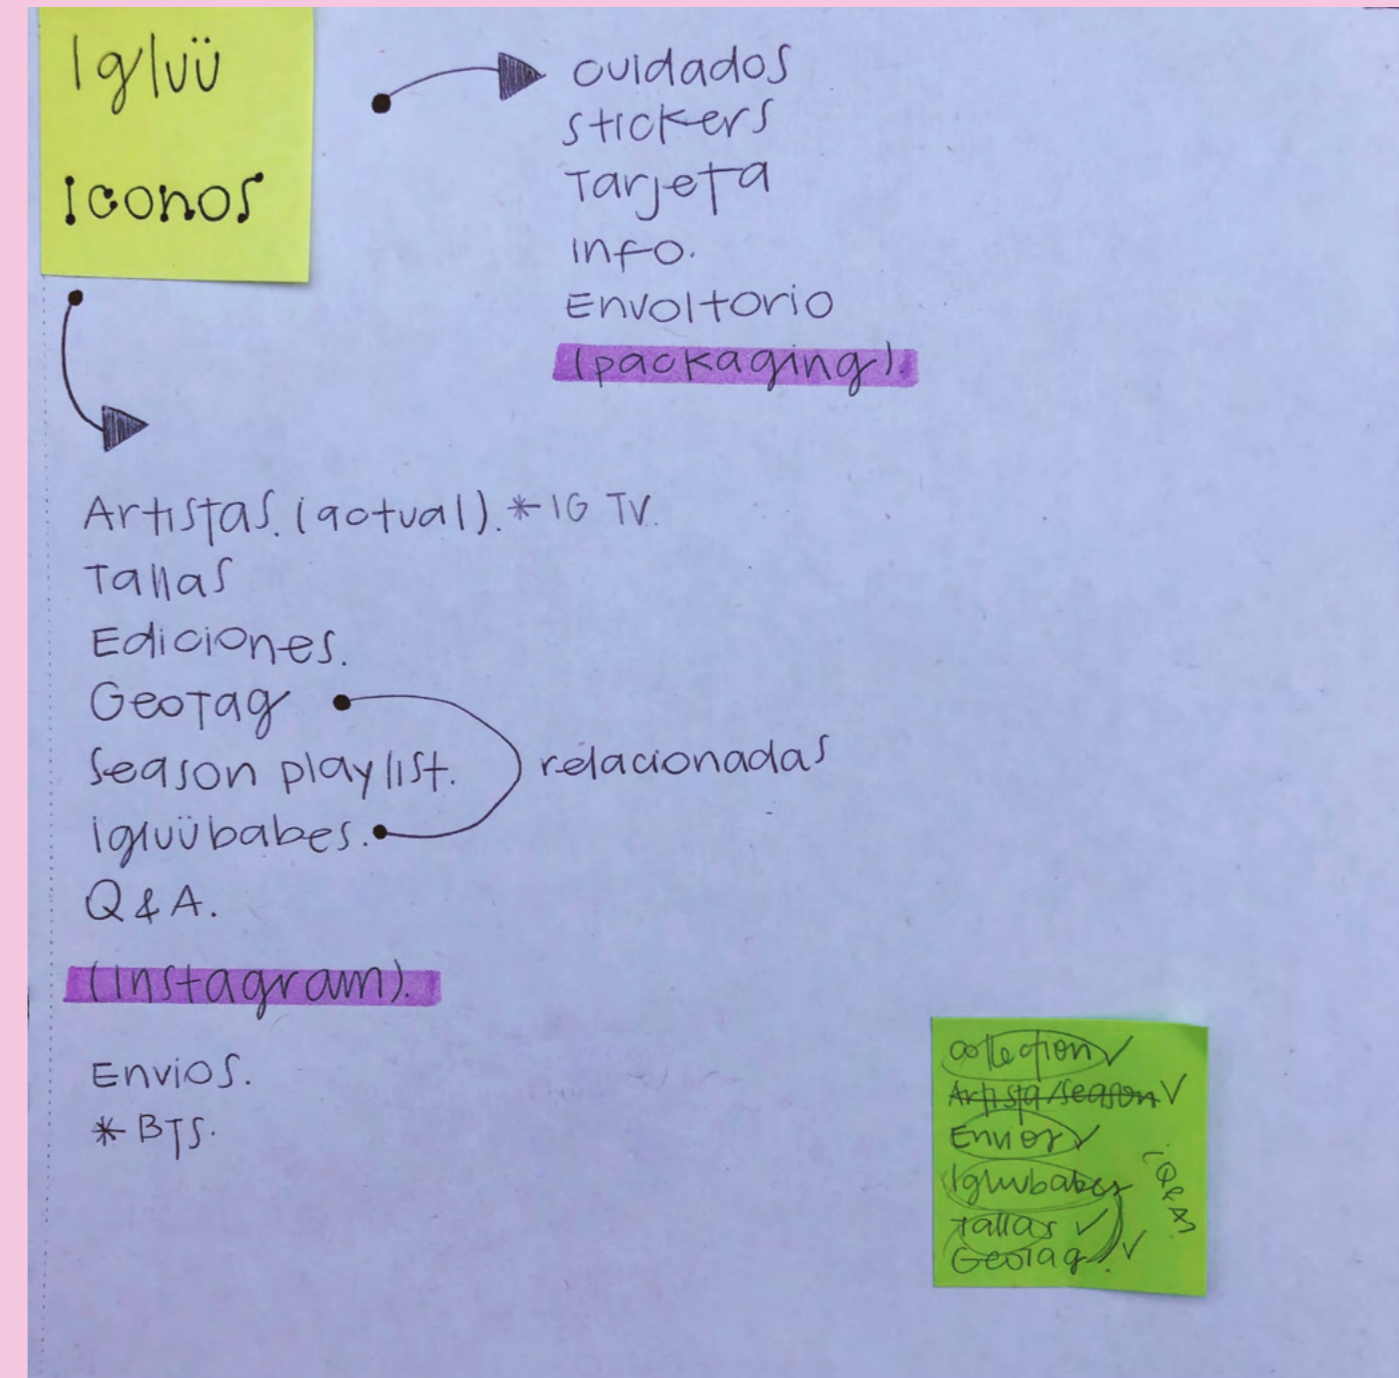 Igluü
Iconos
cuidados
stickers
Tarjeta
info.
Envoltorio
(packaging).
Artistas. (actual). *IG TV.
Tallas
Ediciones.
GeoTag
Season playlist.
relacionadas
igluübabes.
Q & A.
(Instagram).
Envios.
*BTS.
collection ✓
Artista/season ✓
Envios ✓
Iglubabes
Tallas ✓
GeoTag. ✓
¿Q&A?